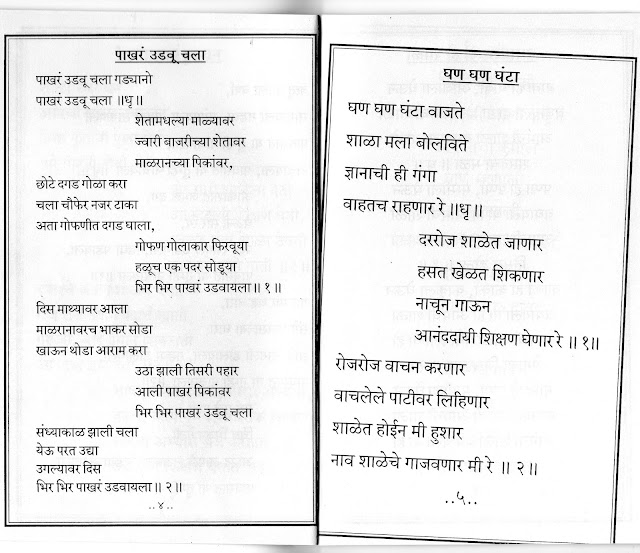 पाखरं उडवू चला
पाखरं उडवू चला गड्यानो
पाखरं उडवू चला ॥धृ॥
शेतामधल्या माळ्यावर
ज्वारी बाजरीच्या शेतावर
माळरानच्या पिकांवर,
छोटे दगड गोळा करा
चला चौफेर नजर टाका
अता गोफणीत दगड घाला,
गोफण गोलाकार फिरवूया
हळूच एक पदर सोडूया
भिर भिर पाखरं उडवायला॥ १॥
दिस माथ्यावर आला
माळरानावरच भाकर सोडा
खाऊन थोडा आराम करा
उठा झाली तिसरी पहार
आली पाखरं पिकांवर
भिर भिर पाखरं उडवू चला
संध्याकाळ झाली चला
येऊ परत उद्या
उगल्यावर दिस
भिर भिर पाखरं उडवायला॥ २॥
..४..
घण घण घंटा
घण घण घंटा वाजते
शाळा मला बोलविते
ज्ञानाची ही गंगा
वाहतच राहणार रे ॥धृ॥
दररोज शाळेत जाणार
हसत खेळत शिकणार
नाचून गाऊन
आनंददायी शिक्षण घेणार रे ॥ १॥
रोजरोज वाचन करणार
वाचलेले पाटीवर लिहिणार
शाळेत होईन मी हुशार
नाव शाळेचे गाजवणार मी रे ॥ २॥
..५..